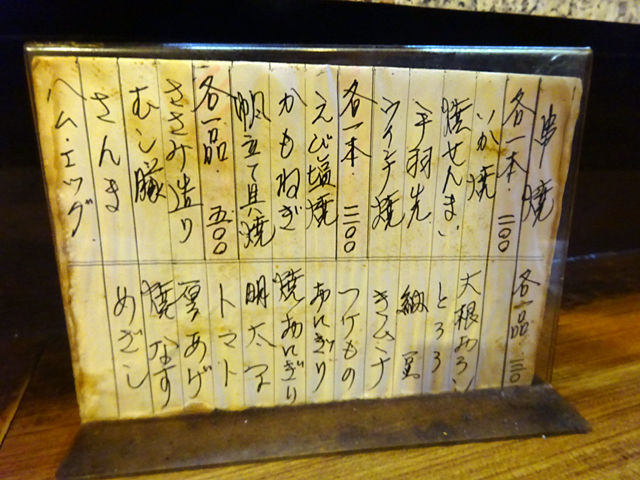 串焼
各一本. 二〇〇
いか焼
焼せんまい
手羽先
ウインナ焼
各一本. 三〇〇
えび塩焼
かもねぎ
帆立て貝焼
各一品. 五〇〇
ささみ造り
むし豚
さんま
ハム・エッグ
各一品.
大根おろし
とろろ
納豆
キムチ
つけもの
おにぎり
焼おにぎり
明太子
トマト
厚あげ
焼なす
めざし